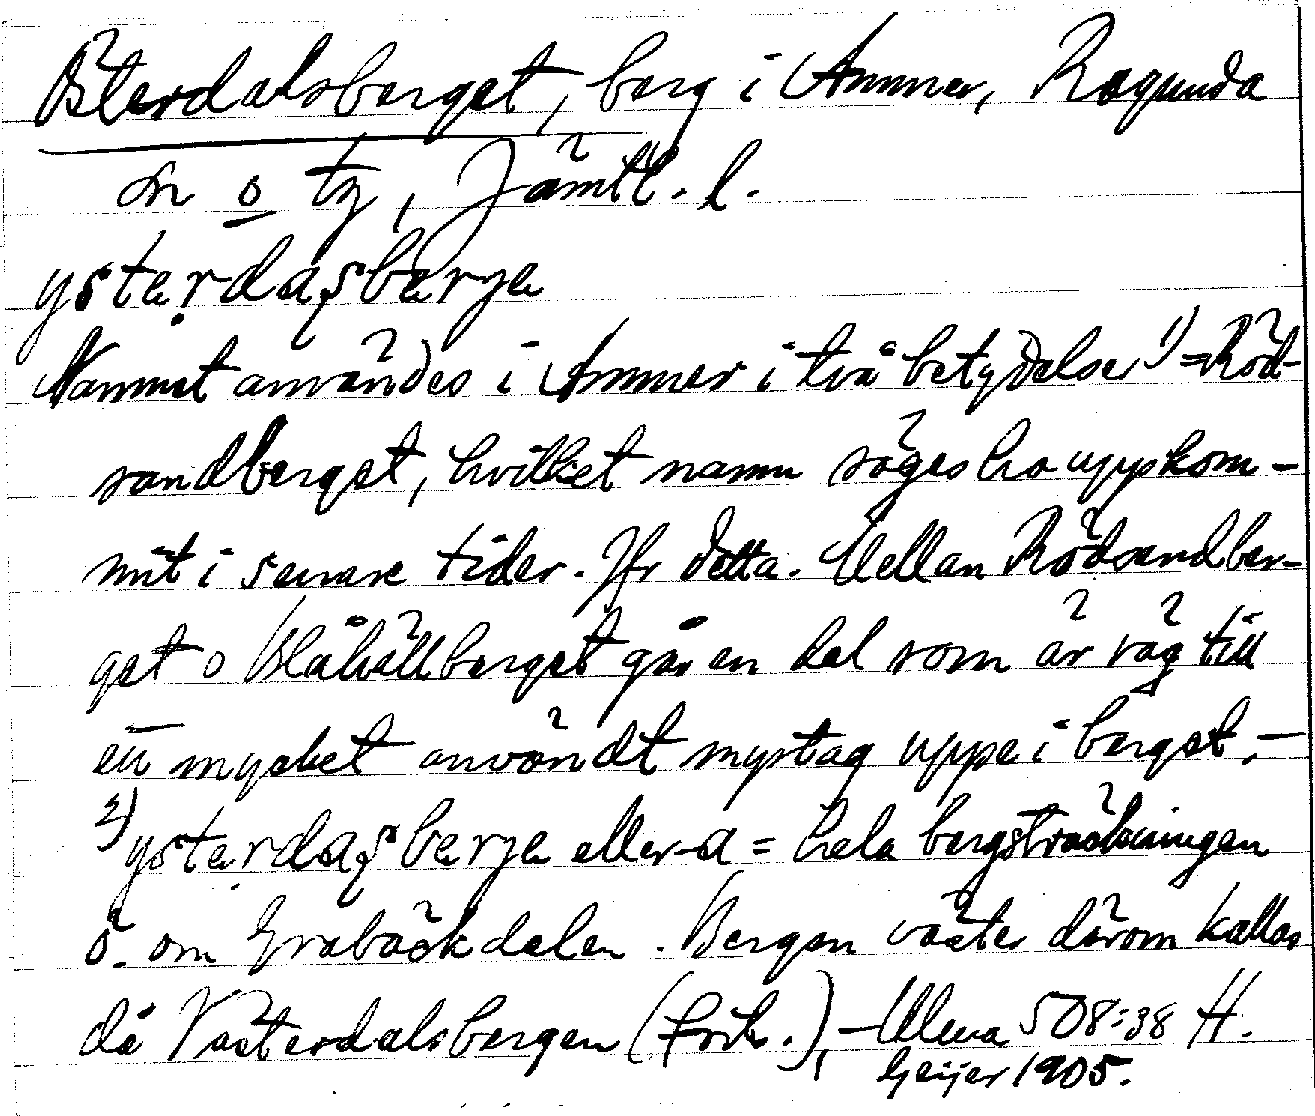 Österdalsberget, berg i Ammer, Ragunda
sn o tg, Jämtl. l.
ysterdaʃsbærje
Namnet användes i Ammer i två betydelser 1) = Röd-
sandberget, hvilket namn säges ha uppkom-
mit i senare tider. Jfr detta. Mellan Rödsandber-
get o Blåhällberget går en dal som är väg till
ett mycket användt myrtag uppe i berget. –
2) ysterdaʃsberje eller -a = hela bergsträckningen
ö. om Grabäckdalen. Bergen väster därom kallas
då Västerdalsbergen (forts.), – Ulma 508:38 H.
Geijer 1905.